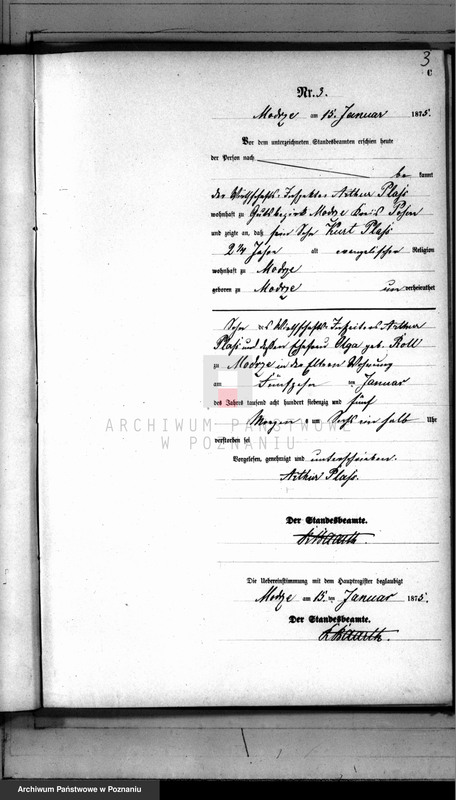 3
C
Nr. 3.
Modrze am 15. Januar 1875.
Vor dem unterzeichneten Standesbeamten erschien heute
der Person nach
be kannt
der Wirthschafts-Inspektor Arthur Plass
wohnhaft zu Gutsbezirk Modrze Kreis Posen
und zeigte an, daß sein Sohn Kurt Plass
2 3/4 Jahre alt evangelischer Religion
wohnhaft zu Modrze
geboren zu Modrze un verheirathet
Sohn des Wirthschafts-Inspektors Arthur
Plass und dessen Ehefrau Olga geb. Roll
zu Modrze in der Eltern Wohnung
am Fünfzehn ten Januar
des Jahres tausend acht hundert siebenzig und fünf
Morgens um Sechs ein halb Uhr
verstorben sei
Vorgelesen, genehmigt und unterschrieben.
Arthur Plass.
Der Standesbeamte.
Die Uebereinstimmung mit dem Hauptregister beglaubigt
Modrze am 15. ten Januar 1875.
Der Standesbeamte.
ARCHIWUM PAŃSTWOWE
W POZNANIU
Archiwum Państwowe w Poznaniu